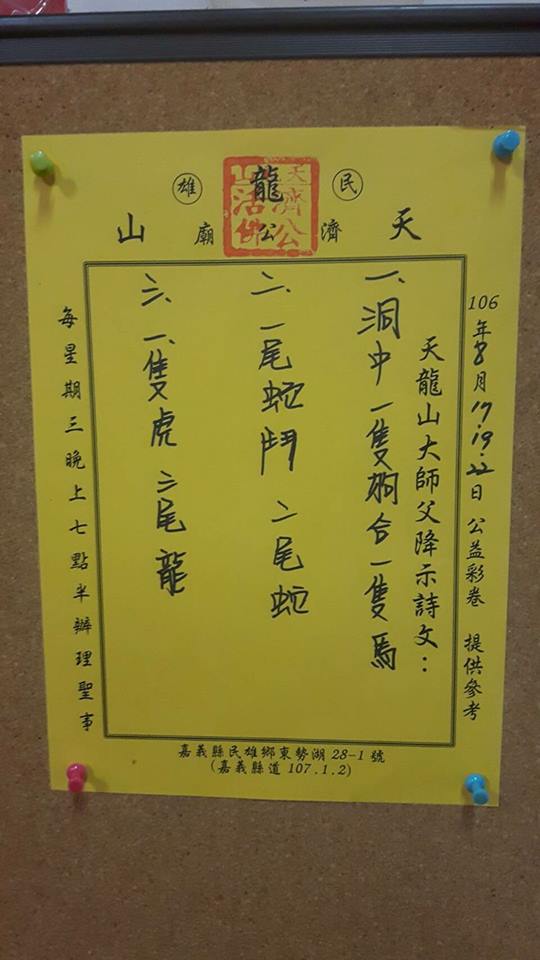 民雄
天龍山
濟公廟
天山濟公活佛
106年8月17.19.22日 公益彩卷 提供參考
天龍山大師父降示詩文：
一、洞中一隻狗合一隻馬
二、一尾蛇鬥二尾蛇
三、一隻虎三尾龍
每星期三晚上七點半辦理聖事
嘉義縣民雄鄉東勢湖28-1號
(嘉義縣道107.1.2)